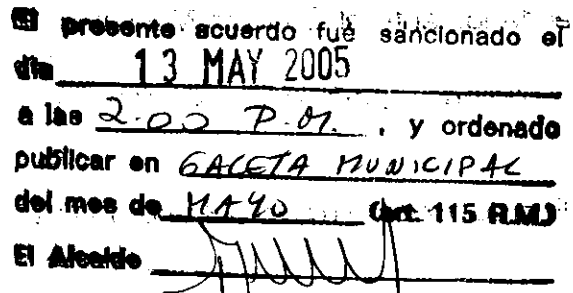 El presente acuerdo fué sancionado el
día 13 MAY 2005
a las 2.00 P.M. , y ordenado
publicar en GACETA MUNICIPAL
del mes de MAYO (art. 115 R.M.)
El Alcalde